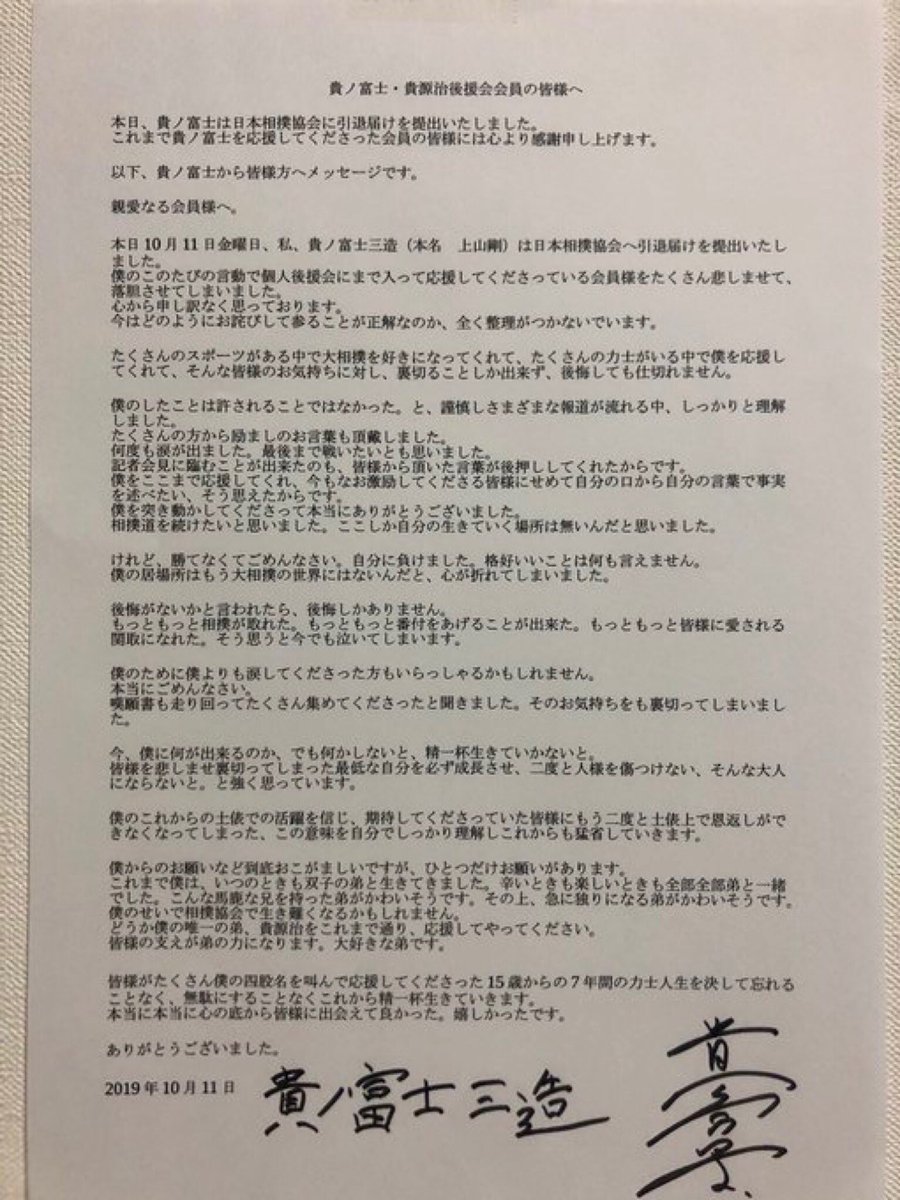 貴ノ富士・貴源治後援会会員の皆様へ
本日、貴ノ富士は日本相撲協会に引退届けを提出いたしました。
これまで貴ノ富士を応援してくださった会員の皆様には心より感謝申し上げます。
以下、貴ノ富士から皆様方へメッセージです。
親愛なる会員様へ。
本日10月11日金曜日、私、貴ノ富士三造（本名　上山剛）は日本相撲協会へ引退届けを提出いたし
ました。
僕のこのたびの言動で個人後援会にまで入って応援してくださっている会員様をたくさん悲しませて、
落胆させてしまいました。
心から申し訳なく思っております。
今はどのようにお詫びして参ることが正解なのか、全く整理がつかないでいます。
たくさんのスポーツがある中で大相撲を好きになってくれて、たくさんの力士がいる中で僕を応援し
てくれて、そんな皆様のお気持ちに対し、裏切ることしか出来ず、後悔しても仕切れません。
僕のしたことは許されることではなかった。と、謹慎しさまざまな報道が流れる中、しっかりと理解
しました。
たくさんの方から励ましのお言葉も頂戴しました。
何度も涙が出ました。最後まで戦いたいとも思いました。
記者会見に臨むことが出来たのも、皆様から頂いた言葉が後押ししてくれたからです。
僕をここまで応援してくれ、今もなお激励してくださる皆様にせめて自分の口から自分の言葉で事実
を述べたい、そう思えたからです。
僕を突き動かしてくださって本当にありがとうございました。
相撲道を続けたいと思いました。ここしか自分の生きていく場所は無いんだと思いました。
けれど、勝てなくてごめんなさい。自分に負けました。格好いいことは何も言えません。
僕の居場所はもう大相撲の世界にはないんだと、心が折れてしまいました。
後悔がないかと言われたら、後悔しかありません。
もっともっと相撲が取れた。もっともっと番付をあげることが出来た。もっともっと皆様に愛される
関取になれた。そう思うと今でも泣いてしまいます。
僕のために僕よりも涙してくださった方もいらっしゃるかもしれません。
本当にごめんなさい。
嘆願書も走り回ってたくさん集めてくださったと聞きました。そのお気持ちをも裏切ってしまいまし
た。
今、僕に何が出来るのか、でも何かしないと、精一杯生きていかないと。
皆様を悲しませ裏切ってしまった最低な自分を必ず成長させ、二度と人様を傷つけない、そんな大人
にならないと。と強く思っています。
僕のこれからの土俵での活躍を信じ、期待してくださっていた皆様にもう二度と土俵上で恩返しがで
きなくなってしまった、この意味を自分でしっかり理解しこれからも猛省していきます。
僕からのお願いなど到底おこがましいですが、ひとつだけお願いがあります。
これまで僕は、いつのときも双子の弟と生きてきました。辛いときも楽しいときも全部全部弟と一緒
でした。こんな馬鹿な兄を持った弟がかわいそうです。その上、急に独りになる弟がかわいそうです。
僕のせいで相撲協会で生き難くなるかもしれません。
どうか僕の唯一の弟、貴源治をこれまで通り、応援してやってください。
皆様の支えが弟の力になります。大好きな弟です。
皆様がたくさん僕の四股名を叫んで応援してくださった15歳からの7年間の力士人生を決して忘れる
ことなく、無駄にすることなくこれから精一杯生きていきます。
本当に本当に心の底から皆様に出会えて良かった。嬉しかったです。
ありがとうございました。
2019年10月11日
貴ノ富士 三造